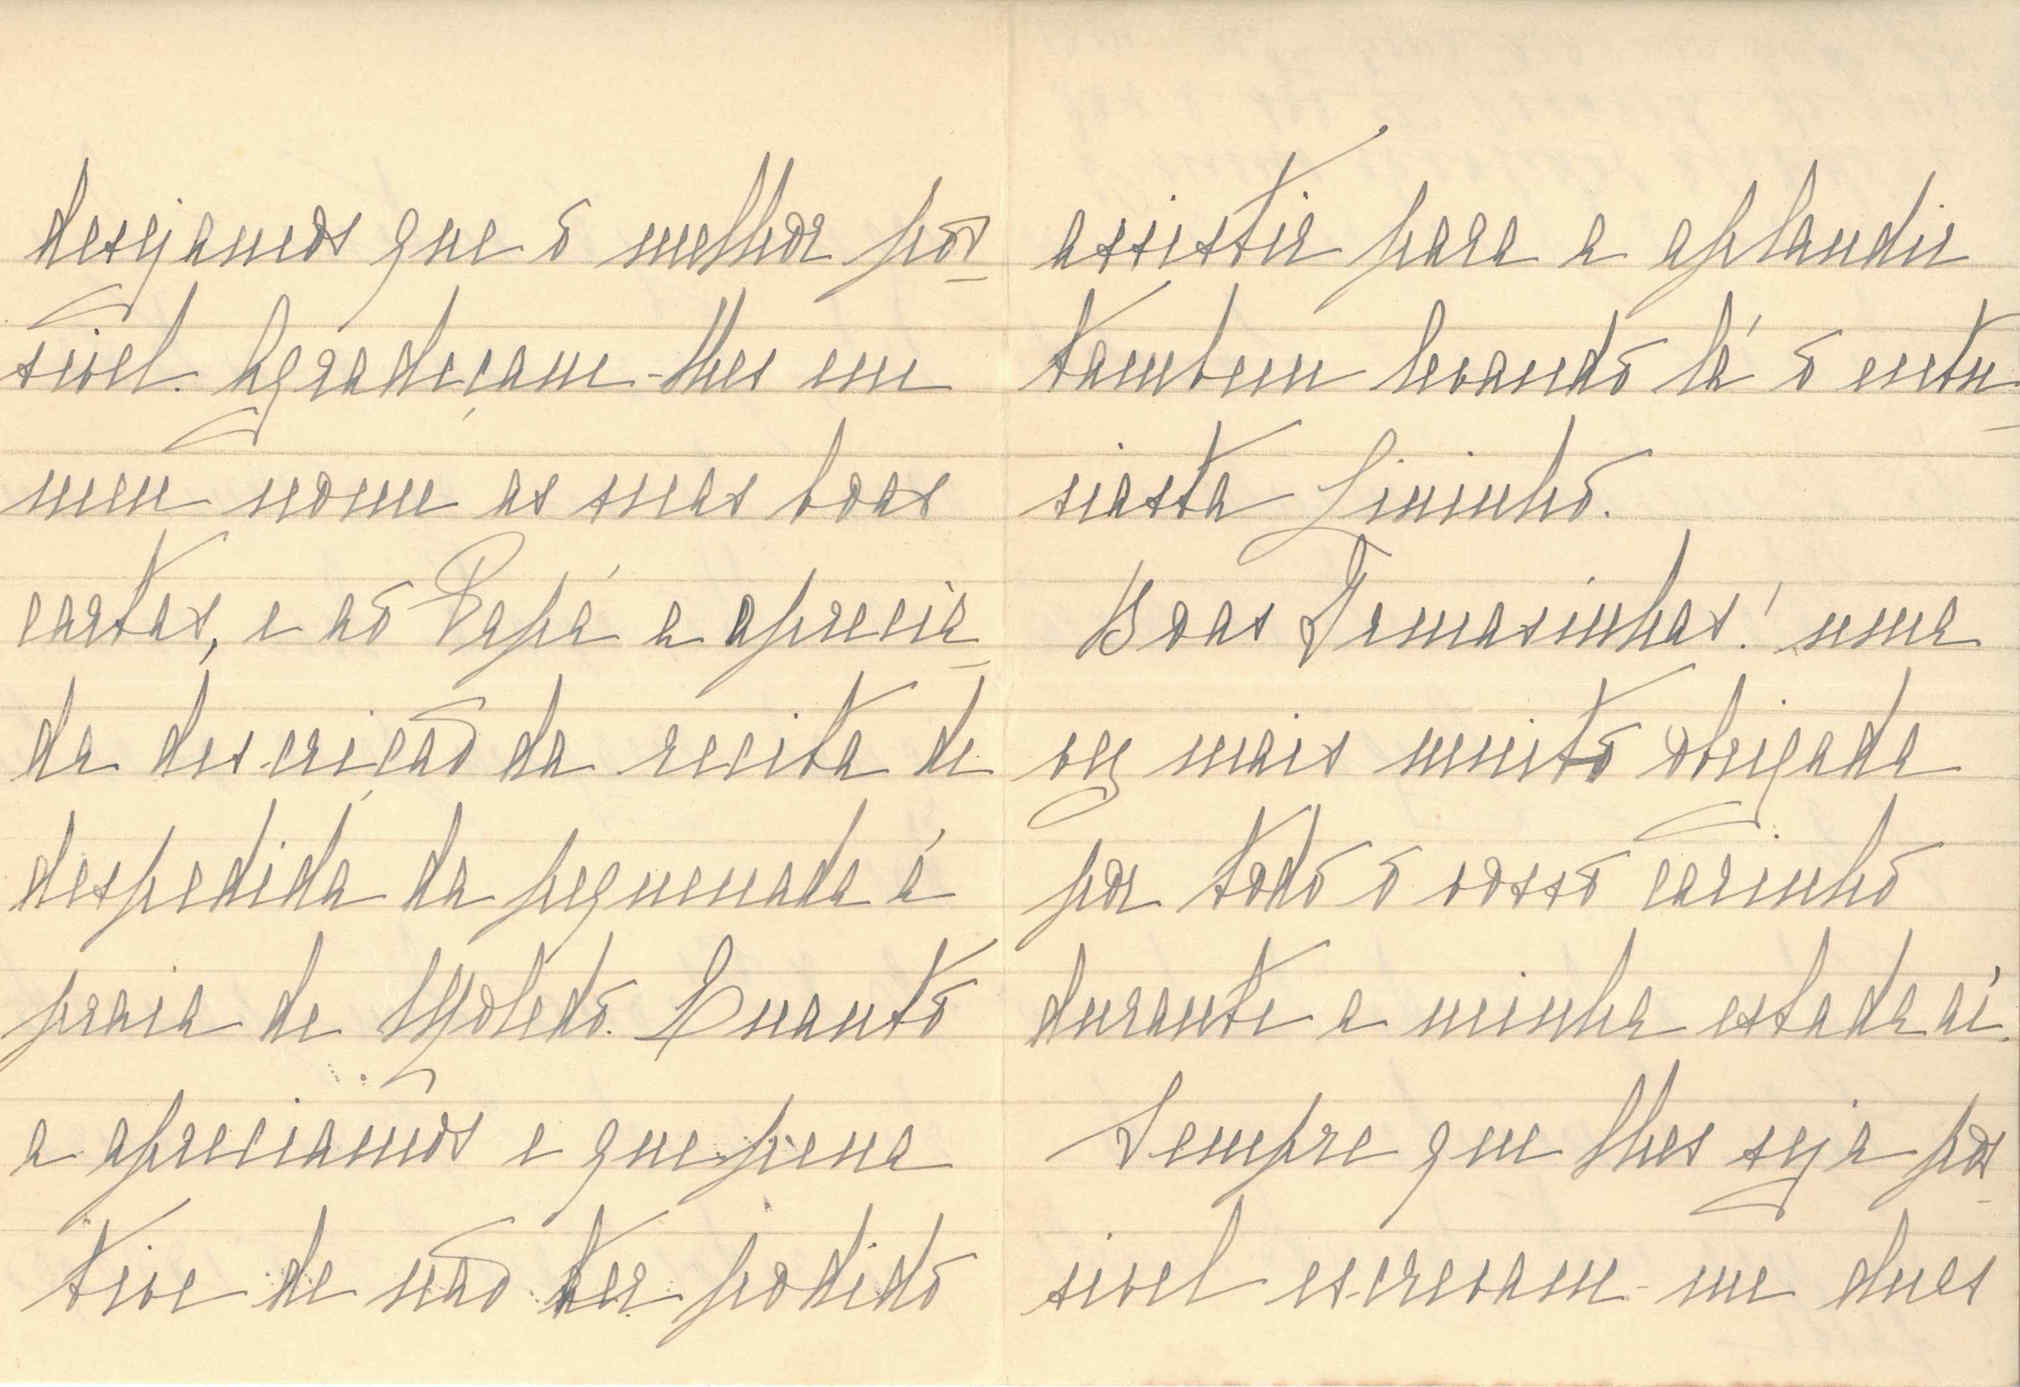 desejamos que o melhor pos-
sivel. Agradeçam-lhes em
meu nome as suas boas
cartas, e ao Papá a aprecia-
da descrição da recita de
despedida da pequenada á
praia de Moledo. Quanto
a apreciamos e que pena
tive de não ter podido
assistir para a aplaudir
tambem levando lá o entu-
siasta Lininho.
Boas Irmasinhas! uma
vez mais muito obrigada
por todo o vosso carinho
durante a minha estada aí.
Sempre que lhes seja pos-
sivel escrevam-me duas